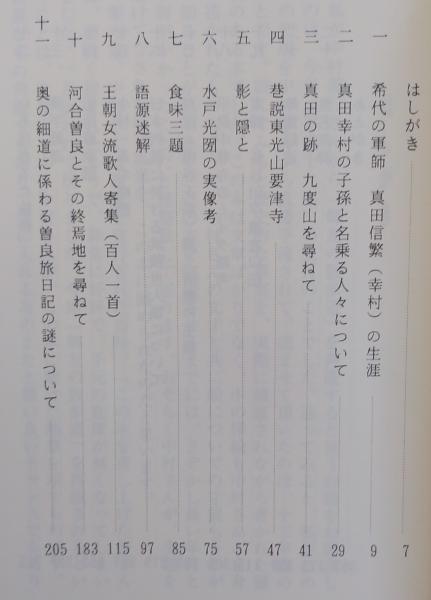 はしがき 7
一 希代の軍師 真田信繁（幸村）の生涯 9
二 真田幸村の子孫と名乗る人々について 29
三 真田の跡 九度山を尋ねて 41
四 巷説東光山要津寺 47
五 影と隠と 57
六 水戸光圀の実像考 75
七 食味三題 85
八 語源迷解 97
九 王朝女流歌人寄集（百人一首） 115
十 河合曽良とその終焉地を尋ねて 183
十一 奥の細道に係わる曽良旅日記の謎について 205